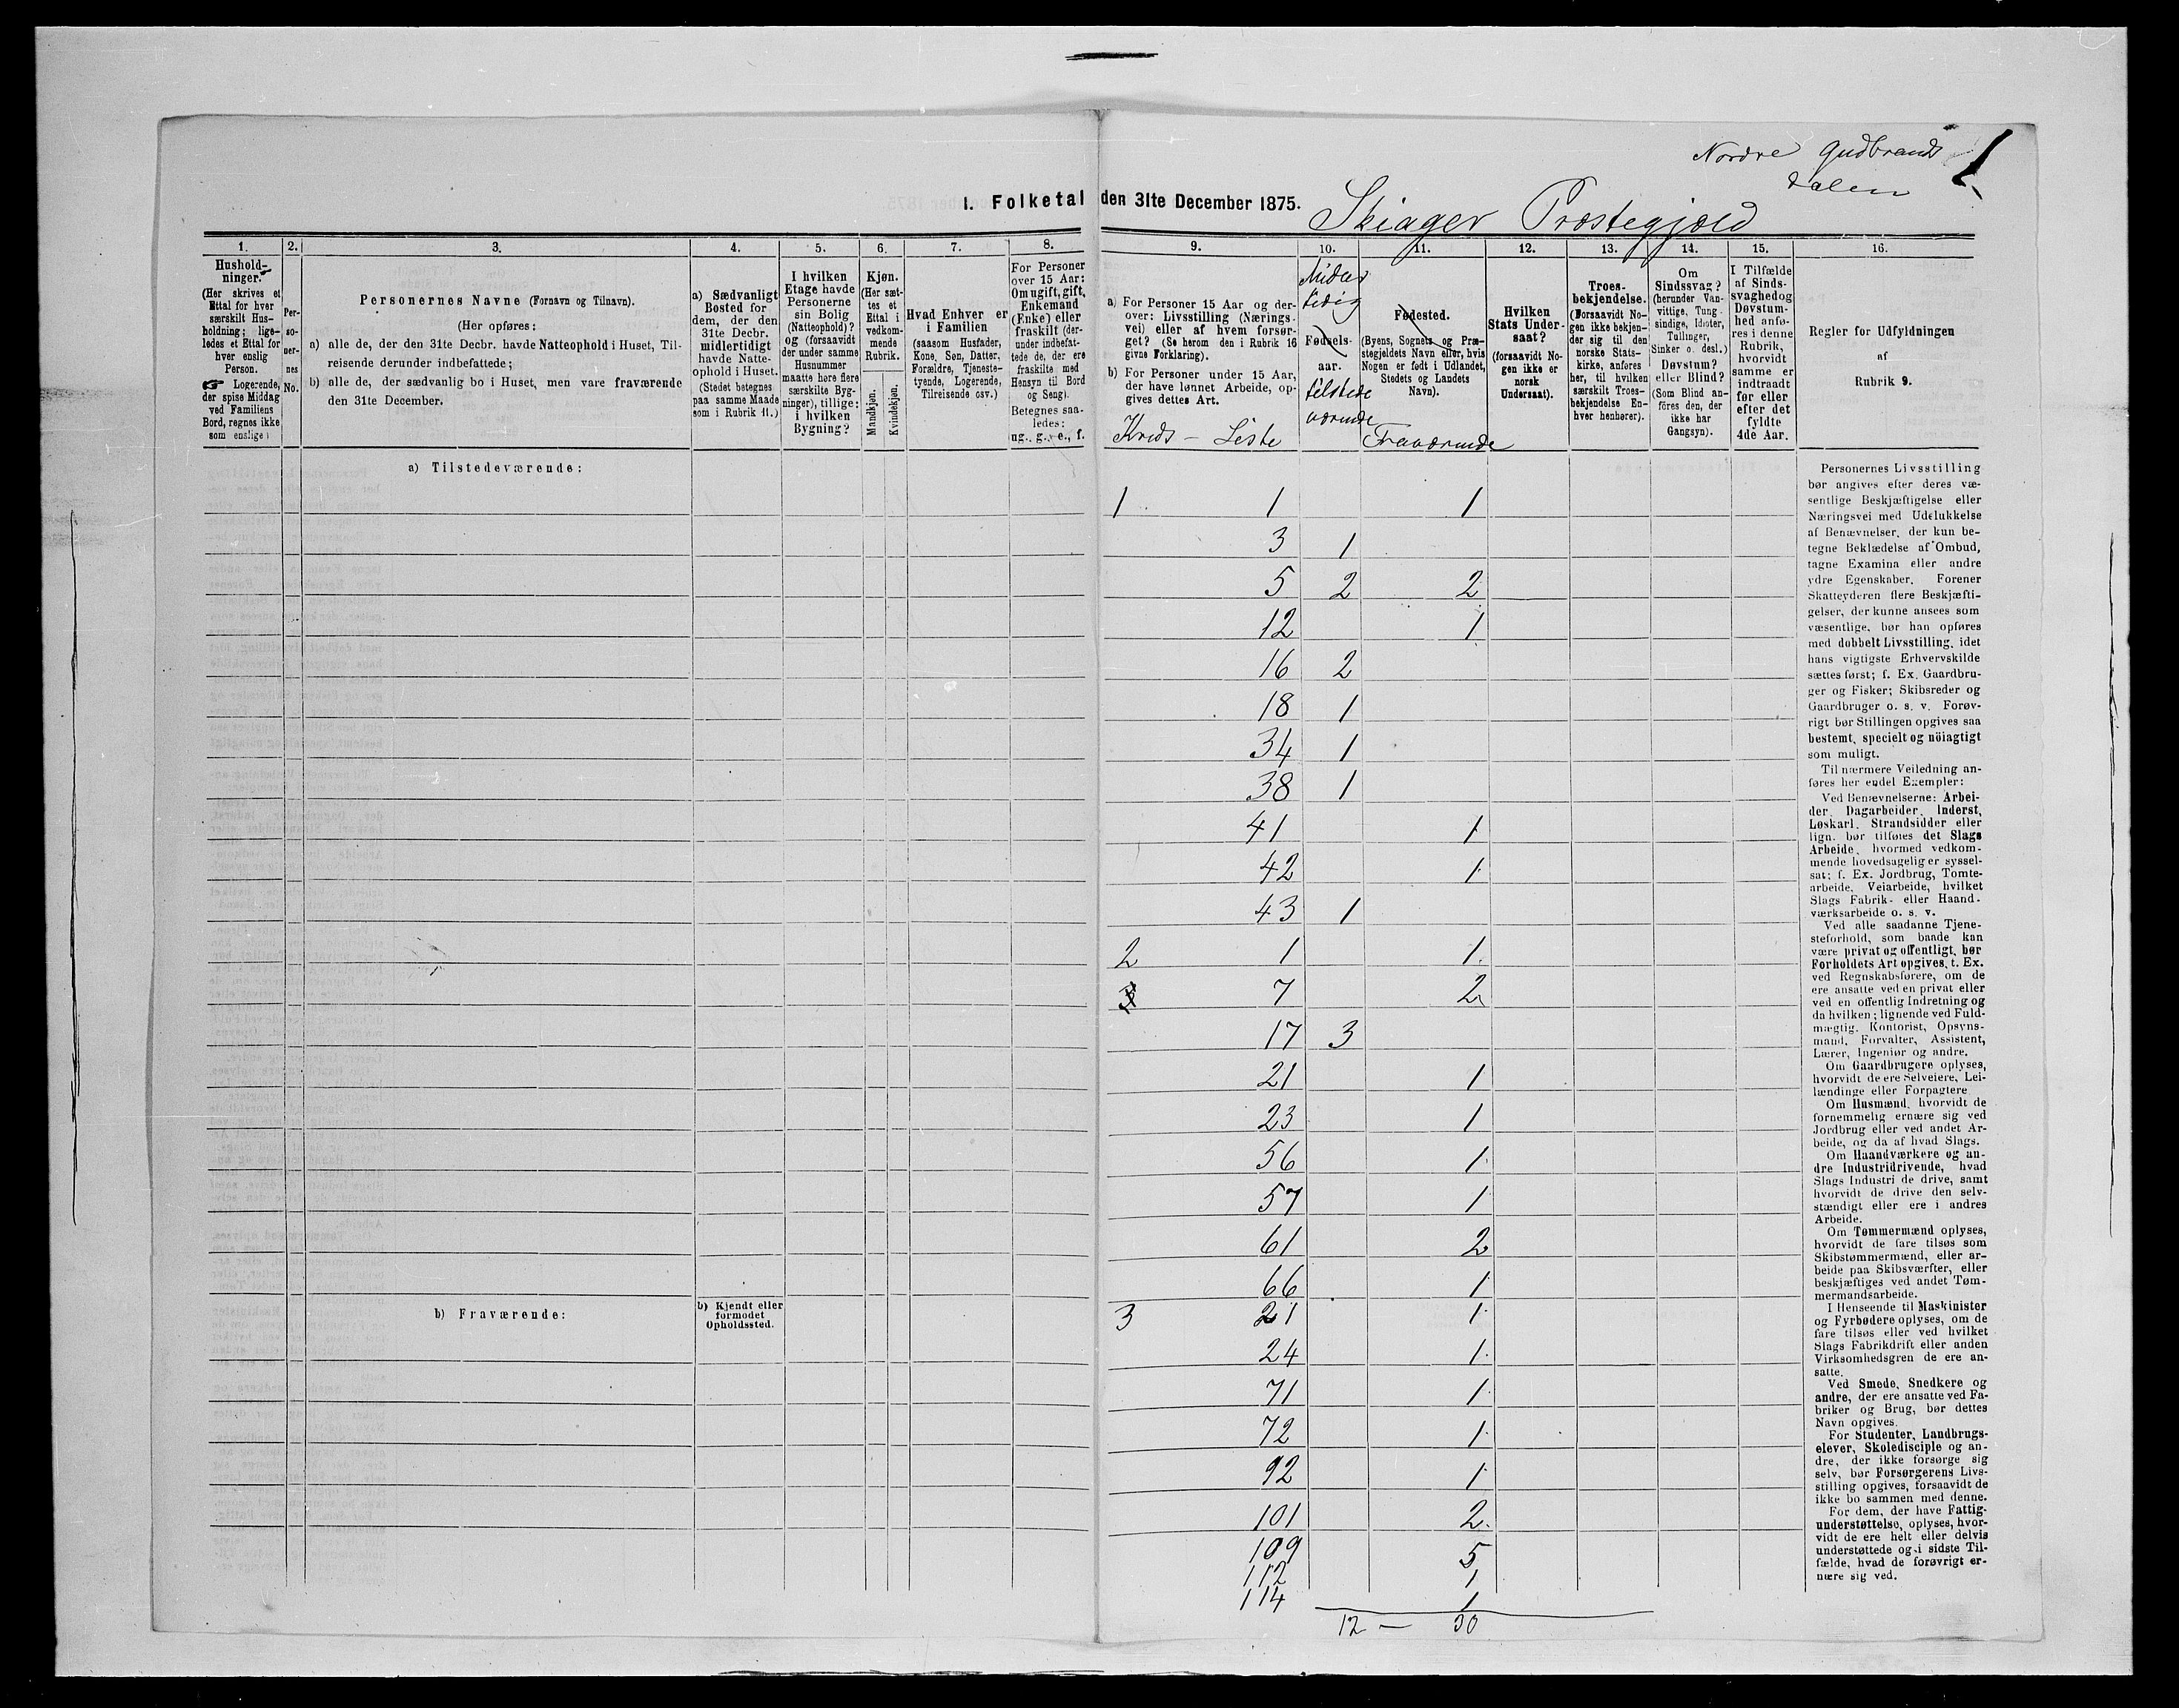 Nordre Gudbrands
dalen
1
I. Folketal den 31te December 1875.
Skiager Præstegjæld
1.
Hushold-
ninger.
(Her skrives et
Ettal for hver
særskilt Hus-
holdning; lige-
ledes et Ettal for
hver enslig
Person.
☞ Logerende,
der spise Middag
ved Familiens
Bord, regnes ikke
som enslige)
2.
Per-
so-
ner-
nes
No.
3.
Personernes Navne (Fornavn og Tilnavn).
(Her opføres:
a) alle de, der den 31te Decbr. havde Natteophold i Huset, Til-
reisende derunder indbefattede;
b) alle de, der sædvanlig bo i Huset, men vare fraværende
den 31te December.
4.
a) Sædvanligt
Bosted for
dem, der den
31te Decbr.
midlertidigt
havde Natte-
ophold i Huset.
(Stedet betegnes
paa samme Maade
som i Rubrik 11.)
5.
I hvilken
Etage havde
Personerne
sin Bolig
(Natteophold)?
og (forsaavidt
der under samme
Husnummer
maatte høre flere
særskilte Byg-
ninger), tillige:
i hvilken
Bygning?
6.
Kjøn.
(Her sæt-
tes et
Ettal i
vedkom-
mende
Rubrik.
Mandkjøn.
Kvindekjøn.
7.
Hvad Enhver er
i Familien
(saasom Husfader,
Kone, Søn, Datter,
Forældre, Tjeneste-
tyende, Logerende,
Tilreisende osv.)
8.
For Personer
over 15 Aar:
Om ugift, gift,
Enkemand
(Enke) eller
fraskilt (der-
under indbefat-
tede de, der ere
fraskilte med
Hensyn til Bord
og Seng).
Betegnes saa-
ledes:
ug., g., e., f.
9.
a) For Personer 15 Aar og der-
over: Livsstilling (Nærings-
vei) eller af hvem forsør-
get? (Se herom den i Rubrik 16
givne Forklaring).
b) For Personer under 15 Aar,
der have lønnet Arbeide, op-
gives dettes Art.
Kreds – Liste
10.
Midler
tidig
Fødsels-
aar.
tilstede
værende
11.
Fødested.
(Byens, Sognets og Præ-
stegjeldets Navn eller, hvis
Nogen er født i Udlandet,
Stedets og Landets
Navn).
Fraværende
12.
Hvilken
Stats Under-
saat?
(forsaavidt No-
gen ikke er
norsk
Undersaat).
13.
Troes-
bekjendelse.
(Forsaavidt No-
gen ikke bekjen-
der sig til den
norske Stats-
kirke, anføres
her, til hvilken
særskilt Troes-
bekjendelse En-
hver henhører).
14.
Om
Sindssvag?
(herunder Van-
vittige, Tung-
sindige, Idioter,
Tullinger,
Sinker o. desl.)
Døvstum?
eller Blind?
(Som Blind an-
føres den, der
ikke har
Gangsyn).
15.
I Tilfælde
af Sinds-
svaghed og
Døvstum-
hed anfø-
res i denne
Rubrik,
hvorvidt
samme er
indtraadt
før eller
efter det
fyldte
4de Aar.
16.
Regler for Udfyldningen
af
Rubrik 9.
a) Tilstedeværende:
1 1 1
3 1
5 2 2
12 1
16 2
18 1
34 1
38 1
41 1
42 1
43 1
2 1 1
7 2
17 3
21 1
23 1
56 1
57 1
61 2
66 1
b) Fraværende:
b) Kjendt eller
formodet
Opholdssted.
3 21 1
24 1
71 1
72 1
92 1
101 2
109 5
112 1
114 1
12 – 30
Personernes Livsstilling
bør angives efter deres væ-
sentlige Beskjæftigelse eller
Næringsvei med Udelukkelse
af Benævnelser, der kun be-
tegne Beklædelse af Ombud,
tagne Examina eller andre
ydre Egenskaber. Forener
Skatteyderen flere Beskjæfti-
gelser, der kunne ansees som
væsentlige, bør han opføres
med dobbelt Livsstilling, idet
hans vigtigste Erhvervskilde
sættes først; f. Ex. Gaardbru-
ger og Fisker; Skibsreder og
Gaardbruger o. s. v. Forøv-
rigt bør Stillingen opgives saa
bestemt, specielt og nöiagtigt
som muligt.
Til nærmere Veiledning an-
føres her endel Exempler:
Ved Benævnelserne: Arbei-
der, Dagarbeider, Inderst,
Løskarl, Strandsidder eller
lign. bør tilføies det Slags
Arbeide, hvormed vedkom-
mende hovedsagelig er syssel-
sat; f. Ex. Jordbrug, Tomte-
arbeide, Veiarbeide, hvilket
Slags Fabrik- eller Haand-
værksarbeide o. s. v.
Ved alle saadanne Tjene-
steforhold, som baade kan
være privat og offentligt, bør
Forholdets Art opgives, t. Ex.
ved Regnskabsførere, om de
ere ansatte ved en privat eller
ved en offentlig Indretning og
da hvilken; lignende ved Fuld-
mægtig, Kontorist, Opsyns-
mand, Forvalter, Assistent,
Lærer, Ingeniør og andre.
Om Gaardbrugere oplyses,
hvorvidt de ere Selveiere, Lei-
lændinge eller Forpagtere
Om Husmænd, hvorvidt de
fornemmelig ernære sig ved
Jordbrug eller ved andet Ar-
beide, og da af hvad Slags.
Om Haandværkere og an-
dre Industridrivende, hvad
Slags Industri de drive, samt
hvorvidt de drive den selv-
stændigt eller ere i andres
Arbeide.
Om Tømmermænd oplyses,
hvorvidt de fare tilsøs som
Skibstømmermænd, eller ar-
beide paa Skibsværfter, eller
beskjæftiges ved andet Tøm-
mermandsarbeide.
I Henseende til Maskinister
og Fyrbødere oplyses, om de
fare tilsøs eller ved hvilket
Slags Fabrikdrift eller anden
Virksomhedsgren de ere an-
satte.
Ved Smede, Snedkere og
andre, der ere ansatte ved Fa-
briker og Brug, bør dettes
Navn opgives.
For Studenter, Landbrugs-
elever, Skoledisciple og an-
dre, der ikke forsørge sig
selv, bør Forsørgerens Livs-
stilling opgives, forsaavidt de
ikke bo sammen med denne.
For dem, der have Fattig-
understøttelse, oplyses, hvor-
vidt de ere helt eller delvis
understøttede og i sidste Til-
fælde, hvad de forøvrigt er-
nære sig ved.